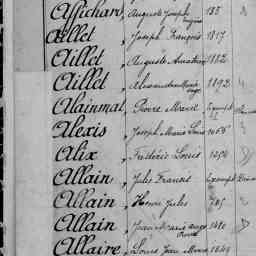 Affichard, Auguste Joseph 135
Aillet, Joseph François 1817
Aillet, Auguste 1822
Aillet, Alexandre Marie 1892
Alainmat, Pierre Marie Exempt
Alexis, Joseph Marie Louis 1068
Alix, Frédéric Louis 1250
Allain, Jules Francis Exempt
Allain, Henri Jules 785
Allain, Jean Marie Ange 1480
Allaire, Louis Jean Marie 1249